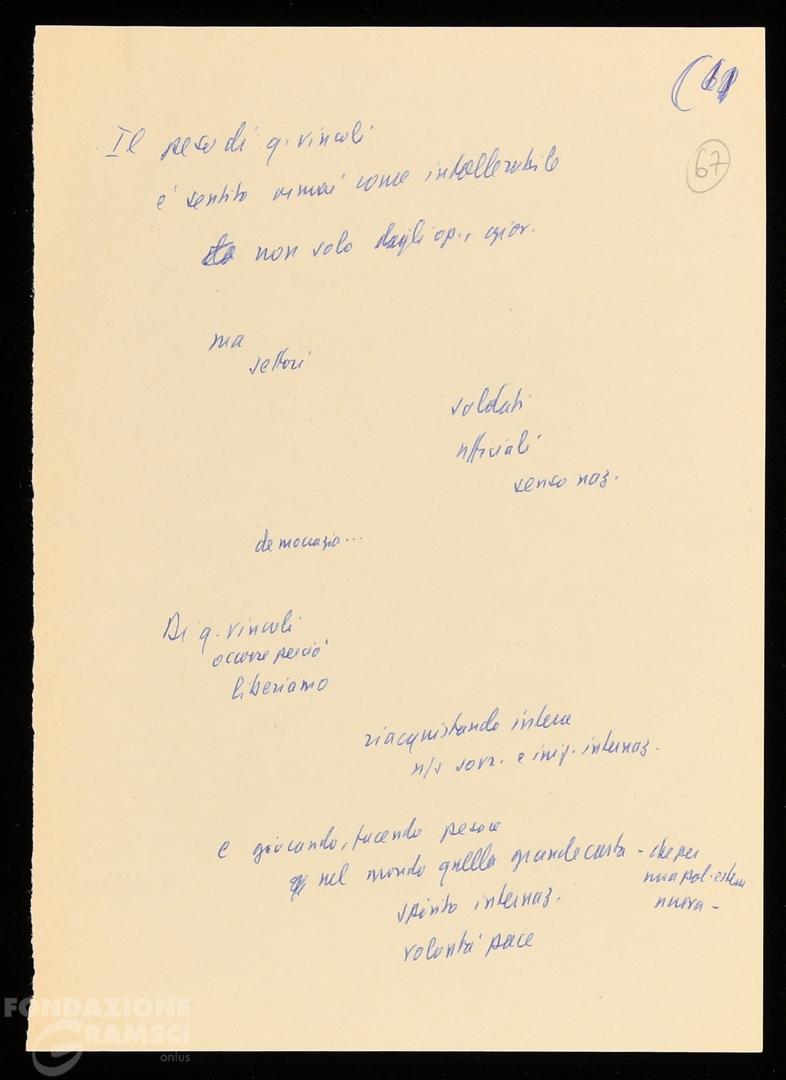 67
Il peso di q. vincoli
è sentito ormai come intollerabile
non solo dagli op., giov.
ma
settori
soldati
ufficiali
senso naz.
democrazia...
Di q. vincoli
occorre perciò
liberiamo
riacquistando intera
n/s sovr. e iniz. internaz.
e giocando, facendo pesare
nel mondo quella grande carta - che per
una pol. estera
nuova -
spirito internaz.
volontà pace
FONDAZIONE
GRAMSCI
onlus